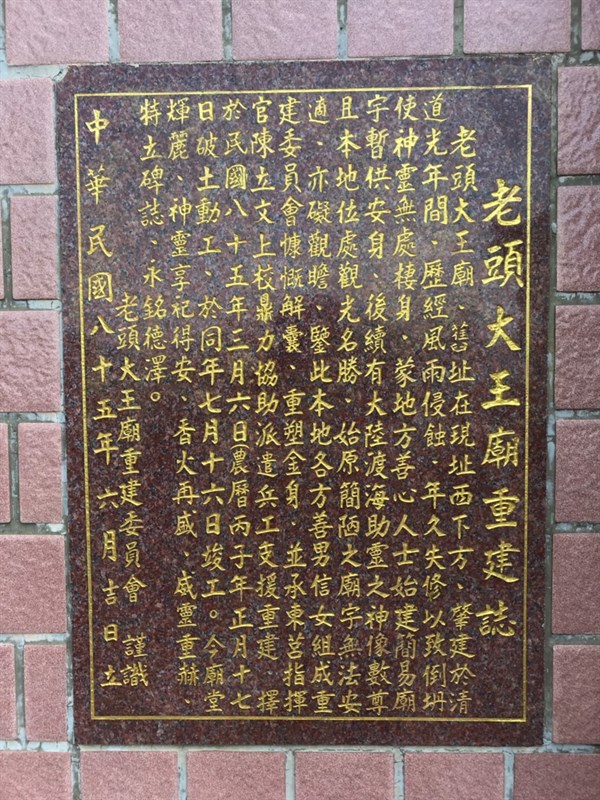 老頭大王廟重建誌
老頭大王廟、舊址在現址西下方、肇建於清
道光年間、歷經風雨侵蝕、年久失修以致倒坍
使神靈無處棲身、蒙地方善心人士始建簡易廟
宇暫供安身、後續有大陸渡海助靈之神像數尊
且本地位處觀光名勝、始原簡陋之廟宇無法安
適、亦礙觀瞻、鑒此本地各方善男信女組成重
建委員會慷慨解囊、重塑金身、並承東莒指揮
官陳立文上校鼎力協助派遣兵工支援重建、擇
於民國八十五年三月六日農曆丙子年正月十七
日破土動工、於同年七月十六日竣工。今廟堂
輝麗、神靈享祀得安、香火再盛、威靈重赫、
特立碑誌、永銘德澤。
老頭大王廟重建委員會 謹識
中華民國八十五年六月吉日立